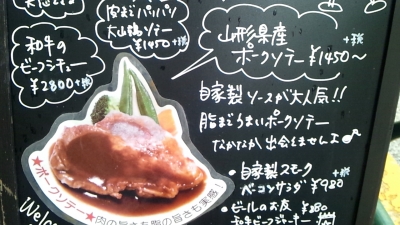 皮までパリパリ
大山鶏ソテー
¥1450 +税
和牛の
ビーフシチュー
¥2800 +税
山形県産
ポークソテー +税
¥1450〜
自家製ソースが大人気!!
脂までうまいポークソテー
なかなか出会えませんよ♪
・自家製スモーク +税
ベーコンサラダ ¥980
・ビールのお友 ¥380
和牛ビーフジャーキー
★ポークソテー★
肉の旨さも脂の旨さも実感!
Welcome